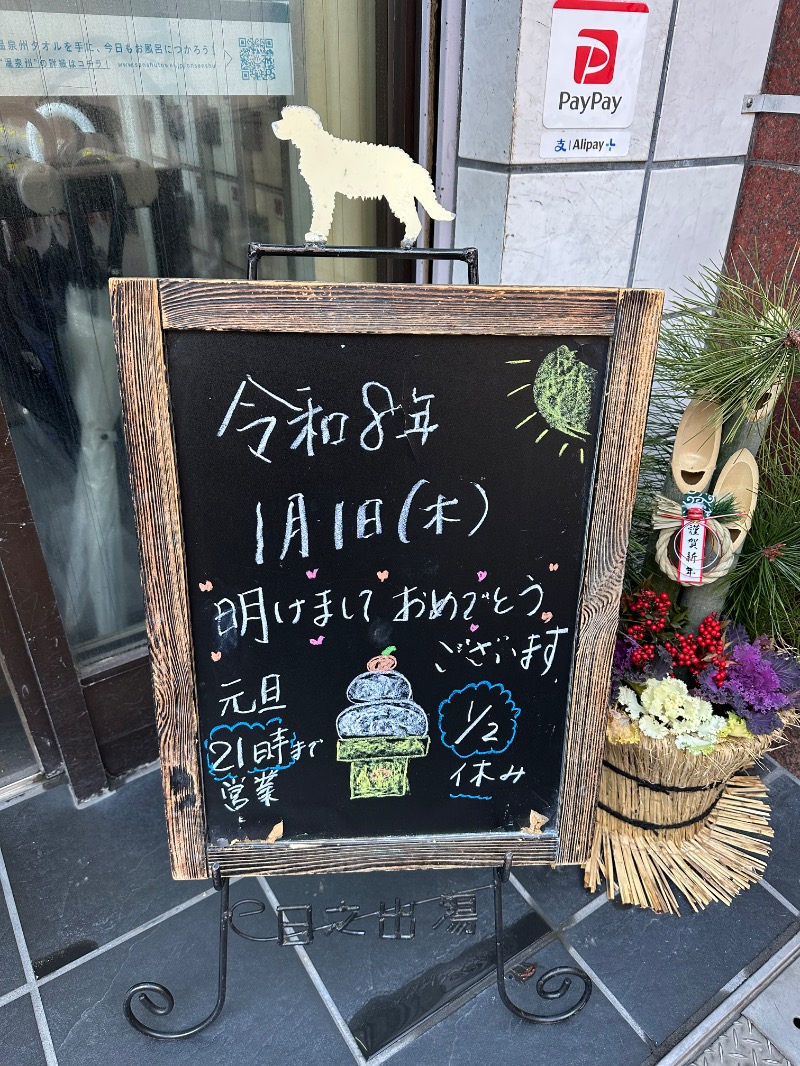 温泉州タオルを手に、今日もお風呂につかろう!
"温泉州"の詳細はコチラ!
PayPay
支 Alipay+
令和8年
1月1日(木)
明けまして おめでとう
ございます
元旦
21時まで
営業
1/2
休み
謹賀新年
日之出湯